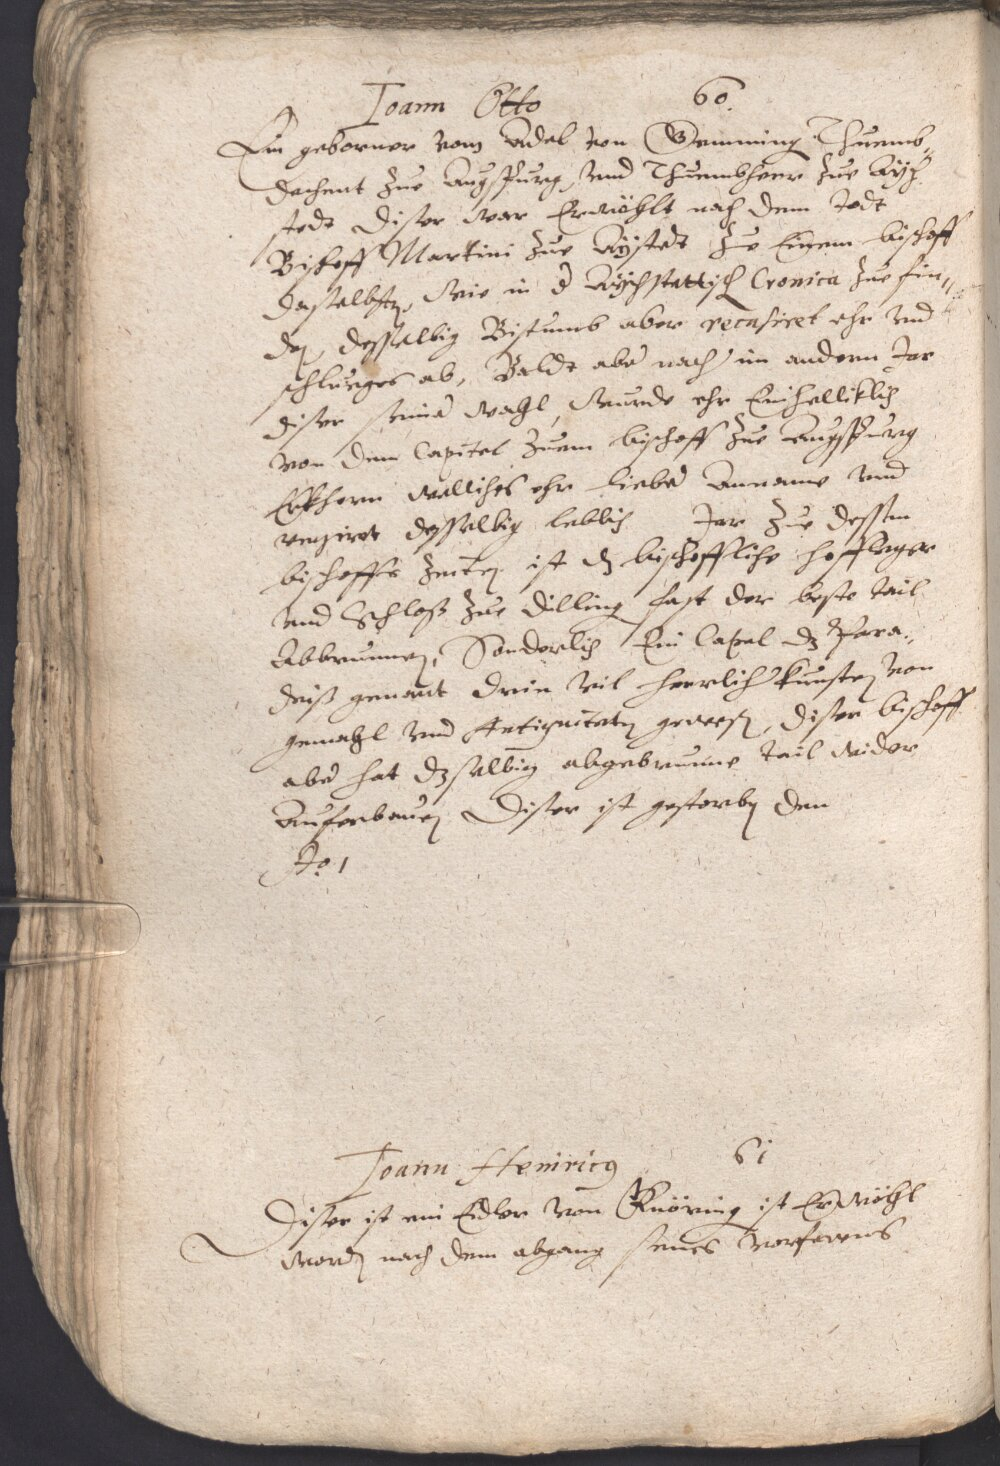 Joann Otto 60.
Ein geborner vom Adel von Gemming Thuemb„
dechent zue Augspurg, vnd Thuembherr zue Aych
stedt diser war Erwöhlt nach dem todt
Bischoff Martini zue Aystedt zue Einem bischoff
daselbsten, wie in d Aychstettisch Cronica zue fin„
den, desselbig Bistumb aber recusiret ehr vnd
schluege es ab, Baldt aber nach im andern Jar
diser seiner wahl, wurde ehr Einhelliklich
von dem Capitel zuem bischoff zue Augspurg
Erkhorn welliches ehr lieber anname vnd
regiret desselbig loblich Jar zue dessen
bischoffs zeiten ist dz bischoffliche hofflager
vnd Schloß zue Dilling fast der beste tail
Abbrunnen, Sonderlich Ein Capel dz Para„
deiß genant drin vil herrlich kunsten von
gemahl vnd Antiquiteten gewesen, diser bischoff
aber hat dzselbig abgebrunne tail wider
Auferbauen Diser ist gestorben den
Ao 1
Joann Heinricus 61
Diser ist ein Edler von Knöring ist Erwöhl
worden nach dem abgang seines vorfarens